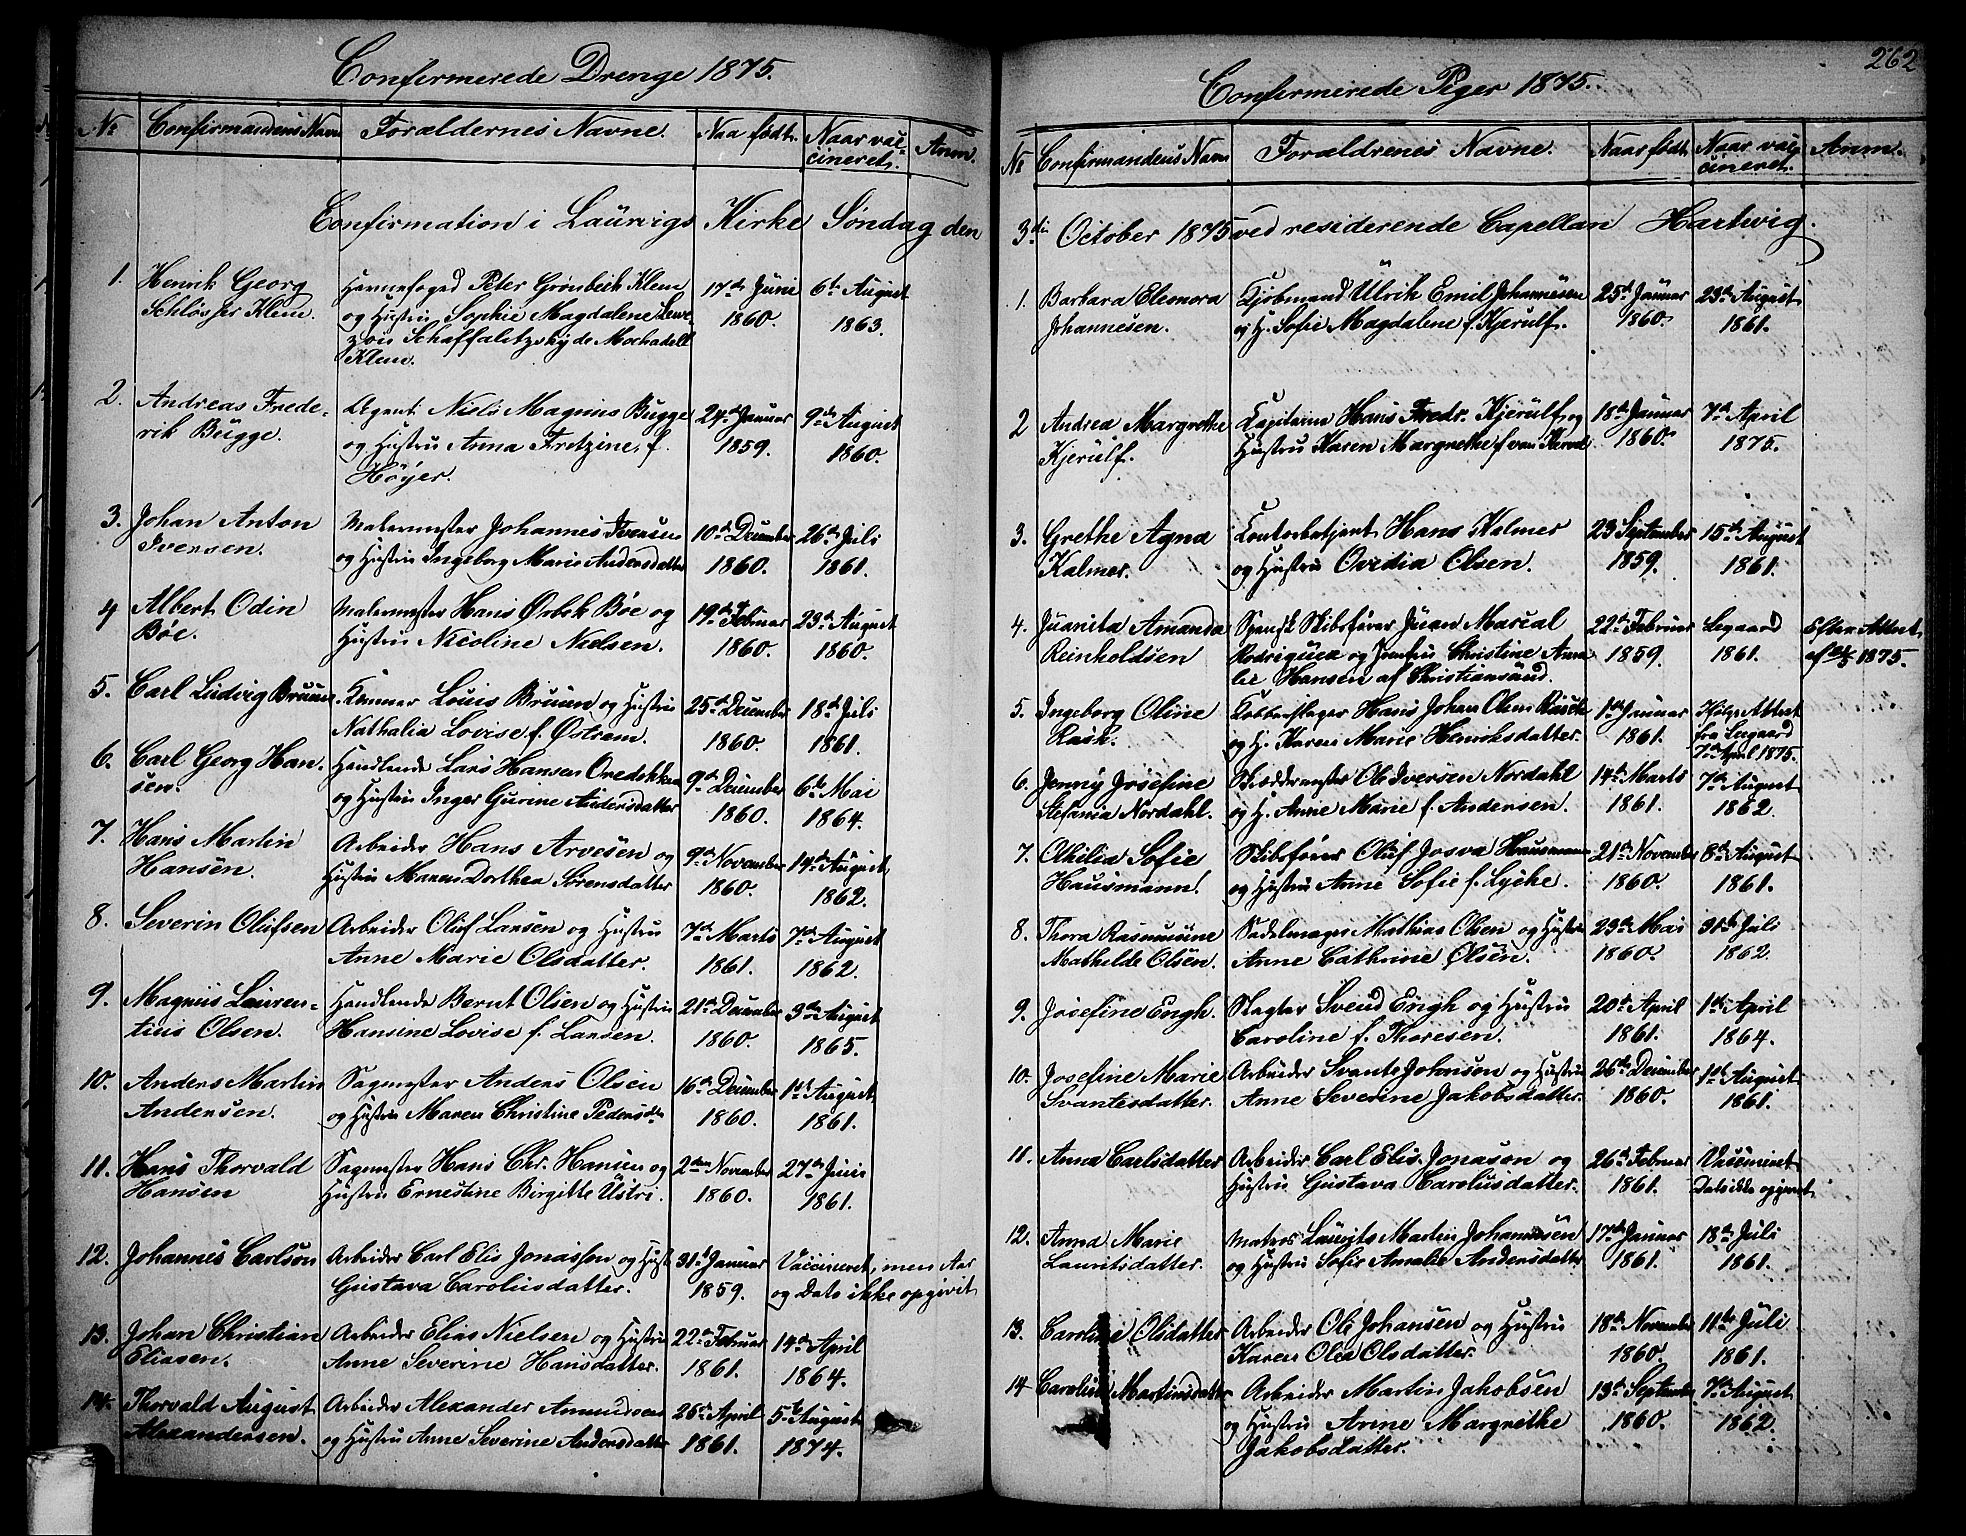 Confirmerede Drenge 1875.
No Confirmandens Navn Forældernes Navne. Naa født. Naar vac-
cineret. Anm.
Confirmation i Laurvigs Kirke Søndag den
1. Henrik Georg Havnefoged Peter Grønbeck Klem 17de Juni 6te August
Schlösser Klem. og Hustru Sophie Magdalene 1860. 1863.
von Schaffalitzky de
Klem.
2. Andreas Frede- Agent Niels Magnus Bugge 24de Januar 9de August
rik Bugge. og Hustru Anna Fretzine, f. 1859. 1860.
Høyer.
3. Johan Anton Malermester Johannes Iversen 10de December 26de Juli
Iversen. og Hustru Ingeborg Marie Andersdatter 1860. 1861.
4 Albert Odin Malermester Hans Ørbek Bøe og 19de Februar 23de August
Bøe. Hustru Nicoline Nielsen. 1860. 1860.
5. Carl Ludvig Bruun. Kemner Louis Bruun og Hustru 25de December 18de Juli
Nathalia Lovise f. Østrem. 1860. 1861.
6. Carl Georg Han- Handlende Lars Hansen 9de December 6te Mai
sen. og Hustru Inger Gurine Andersdatter 1860. 1864.
7. Hans Martin Arbeider Hans Arvesen og 9de November 14de August
Hansen. Hustru Maren Dorthea Sørensdatter 1860. 1862.
8. Severin Olufsen Arbeider Oluf Larsen og Hustru 7de Marts 7de August
Anne Marie Olsdatter. 1861. 1862.
9. Magnus Lauren- Handlende Bernt Olsen og Hustru 21de December 3die August
tius Olsen. Hansine Lovise f. Larsen. 1860. 1865.
10. Anders Martin Sagmester Anders Olsen 16de December 1ste August
Andersen. og Hustru Maren Christine Pedersdtr 1860. 1861.
11. Hans Thorvald Sagmester Hans Chr. Hansen og 2den November 27de Juni
Hansen Hustru Ernestine Birgitte Ustri. 1860. 1861.
12. Johannes Carlson Arbeider Carl Elis Jonasson og Hust. 31te Januar Vaccineret, men Aar
Gustava Carolusdatter. 1859. og Dato ikke opgivet
13. Johan Christian Arbeider Elias Nielsen og Hustru 22de Februar 14de April
Eliasen. Anne Severine Hansdatter. 1861. 1864.
14. Thorvald August Arbeider Alexander Amundsen 26de April 5te August
Alexandersen. og Hustru Anne Severine Andersdatter 1861. 1874.
262
Confirmerede Piger 1875.
No Confirmandens Navn Forældrenes Navne. Naar født. Naar vac-
cineret. Anm.
3die October 1875 ved residerende Capellan Hartwig.
1. Barbara Eleonora Kjøbmand Ulrik Emil Johannesen 25de Januar 23de August
Johannesen. og H. Sofie Magdalene f. Kjerulf. 1860. 1861.
2 Andrea Margrethe Kapitaine Hans Fredr. Kjerulf og 18de Januar 7de April
Kjerulf. Hustru Karen Margrethe f. van 1860. 1875.
3. Grethe Agna Contorbetjent Hans Kalmer 23 September 15de August
Kalmer. og Hustru Ovidia Olsen. 1859. 1861.
4. Juanita Amanda Spansk Skibsfører Juan Marcal 22de Februar Legaard Efter Attest
Reinholdsen Rodriguea og Jomfru Christine Ama- 1859. 1861. af 1875.
lie Hansen af Christiansund.
5. Ingeborg Oline Kobberslager Hans Johan Olsen Rasck 1ste Januar Ifølge Attest
Rask. og H. Karen Marie Henriksdatter. 1861. fra Legaard
7de April 1875.
6. Jenny Josefine Skræddermester Ole Iversen Nordahl 14de Marts 7de August
Stefania Nordahl. og H. Anne Marie f. Andersen. 1861. 1862.
7. Othilia Sofie Skibsfører Oluf Josva Hausmann 21de November 8de August
Hausmann. og Hustru Anne Sofie f. Lycke. 1860. 1861.
8. Thora Rasmusine Sadelmager Mathias Olsen og Hustru 29de Mai 31te Juli
Mathilde Olsen. Anne Cathrine Olsen. 1860. 1862.
9. Josefine Engh. Slagter Svend Engh og Hustru 20de April 1ste April
Caroline f. Thoresen. 1861. 1864.
10. Josefine Marie Arbeider Svante Johnson og Hustru 26de December 1ste August
Svantesdatter. Anne Severine Jakobsdatter. 1860. 1861.
11. Anna Carlsdatter Arbeider Carl Elis. Jonason og 26de Februar Vaccineret
Hustru Gustava Carolusdatter. 1861. Dato ikke opgivet
12. Anna Marie Matros Laurits Martin Johannesen 17de Januar 18de Juli
Lauritsdatter. og Hustru Sofie Amalie Andersdatter 1861. 1861.
13. Caroline Olsdatter Arbeider Ole Johansen og Hustru 18de November 11te Juli
Karen Olea Olsdatter. 1860. 1861.
14 Caroline Martinsdatter Arbeider Martin Jakobsen 13de September 7de August
og Hustru Anne Margrethe 1860. 1862.
Jakobsdatter.